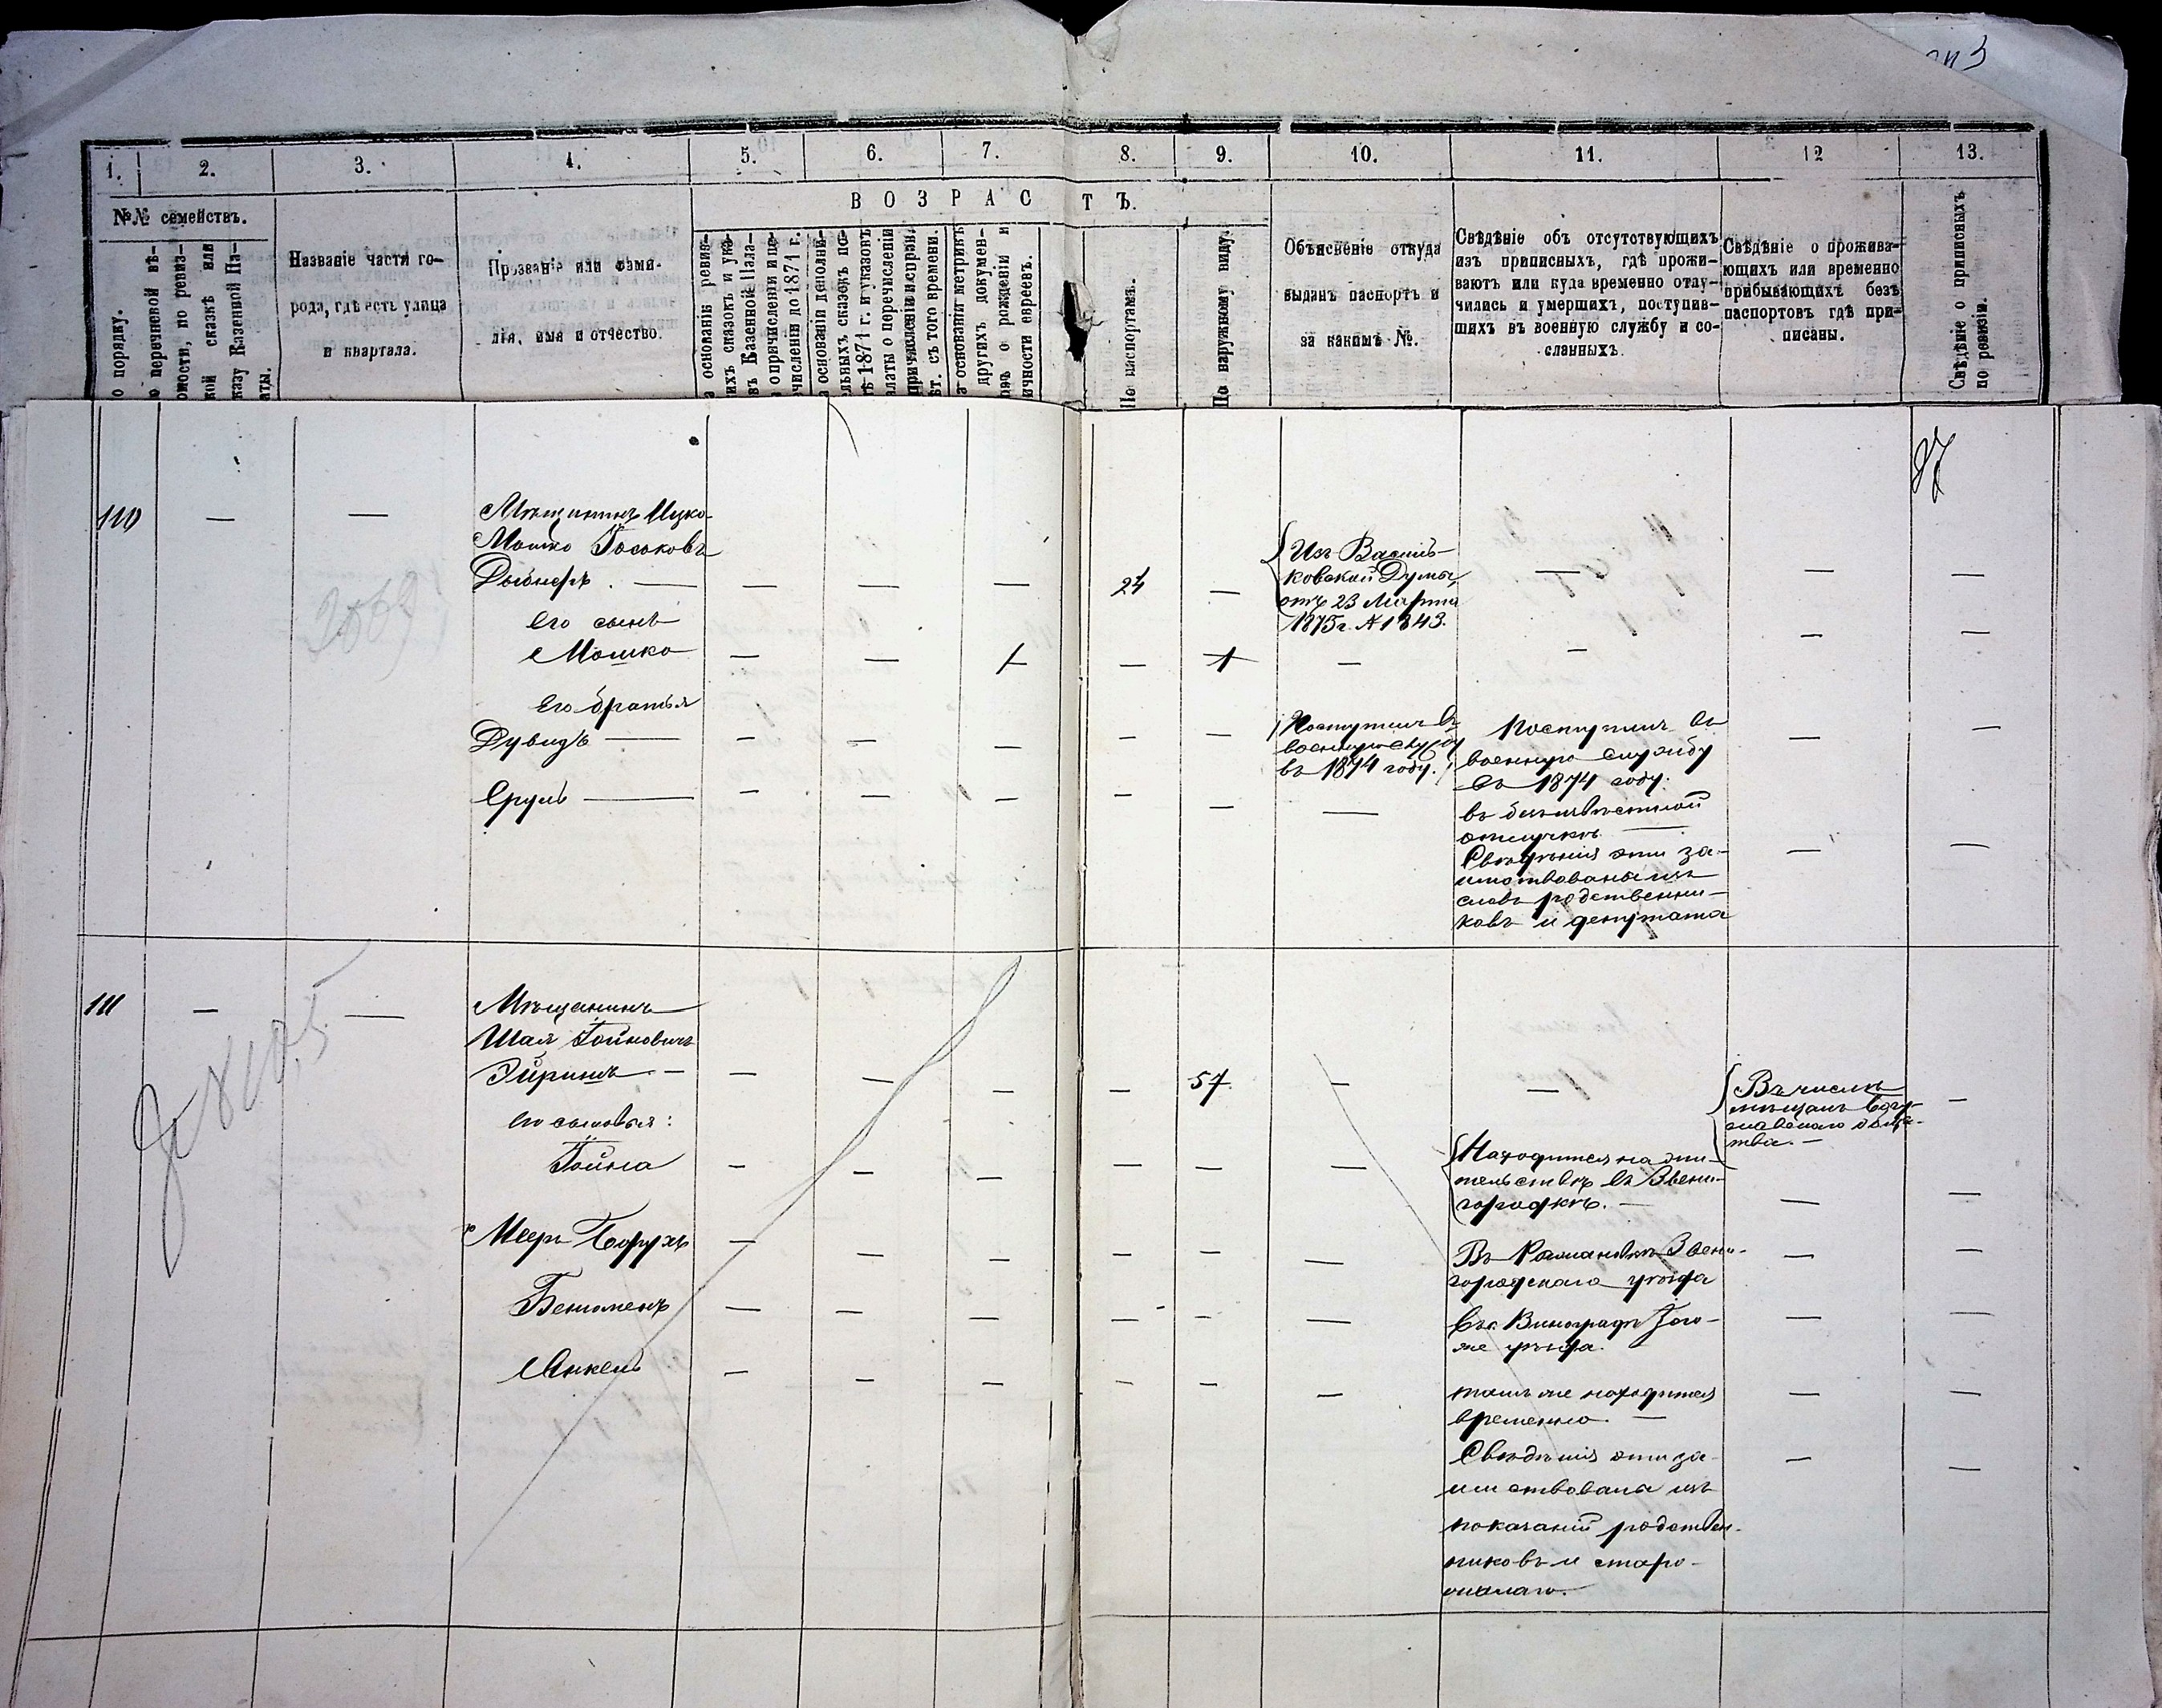 1.
2.
3.
4.
5.
6.
7.
8.
9.
10.
11.
12
13.
№№ семействъ.
ВОЗРАСТЪ.
о порядку.
о перечневой вѣ-
омости, по ревиз-
кой сказкѣ или
казу Казенной Па-
аты.
Названіе части го-
рода, гдѣ есть улица
и квартала.
Прозваніе или фами-
лія, имя и отчество.
а основаніи ревиз-
ихъ сказокъ и ука-
въ Казенной Пала-
о причисленіи и пе-
численіи до 1871 г.
а основаніи дополни-
льныхъ сказокъ по-
ѣ 1871 г. и указовъ
латы о перечисленіи
причисленіи и исправн.
ѣт. съ того времени.
а основаніи метрикъ
другихъ докумен-
овъ о рожденіи и
ичности евреевъ.
По паспортамъ.
По наружному виду.
Объясненіе откуда
выданъ паспортъ и
за какимъ №.
Свѣдѣніе объ отсутствующихъ
изъ приписныхъ, гдѣ прожи-
ваютъ или куда временно отлу-
чились и умершихъ, поступив-
шихъ въ военную службу и со-
сланныхъ.
Свѣдѣніе о прожива-
ющихъ или временно
прибывающихъ безъ
паспортовъ гдѣ при-
писаны.
Свѣдѣніе о приписныхъ
по ревизіи.
110 — —
Мѣщанинъ Ицко-
Мошко Іоськовъ
— — — 24 —
Изъ Василь-
ковской Думы
отъ 23 Марта
1875 г. № 1343.
— — —
Его сынъ
Мошко — — 1 — 1 — — — —
Его братья
Дувидъ — — — — — —
Поступилъ въ
военную службу
въ 1874 году.
Поступилъ въ
военную службу
въ 1874 году.
— —
Сруль — — — — — — —
въ безъизвѣстной
отлучкѣ —
Свѣдѣнія эти за-
имствованы изъ
словъ родственни-
ковъ и депутата
— —
111 — —
Мѣщанинъ
Шая Іойновичъ
— — — — — 57 — —
Въ числѣ
мѣщанъ Богу-
славскаго обще-
тва. —
—
его сыновья:
Іойна — — — — — —
Находится на жи-
тельствѣ въ Звени-
городкѣ. —
— —
Мееръ Борухъ — — — — — —
Въ Романовкѣ Звени-
городскаго уѣзда
— —
Беньоменъ — — — — — —
Въ с. Виноградѣ Того-
же уѣзда.
— —
Анкель — — — — — —
тамъ же находится
временно. —
— —
Свѣдѣнія эти за-
имствована изъ
показаній родствен-
никовъ и старо-
— —